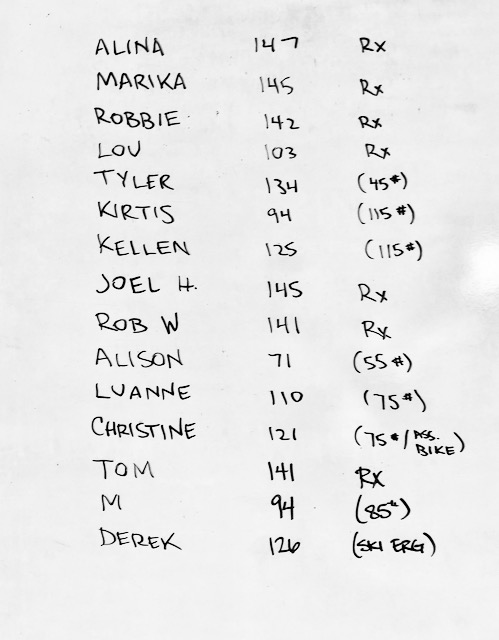 ALINA 147 Rx
MARIKA 145 Rx
ROBBIE 142 Rx
LOU 103 Rx
TYLER 134 (45#)
KIRTIS 94 (115#)
KELLEN 125 (115#)
JOEL H. 145 Rx
ROB W 141 Rx
ALISON 71 (55#)
LUANNE 110 (75#)
CHRISTINE 121 (75#/ASS. BIKE)
TOM 141 Rx
M 94 (85#)
DEREK 126 (SKI ERG)